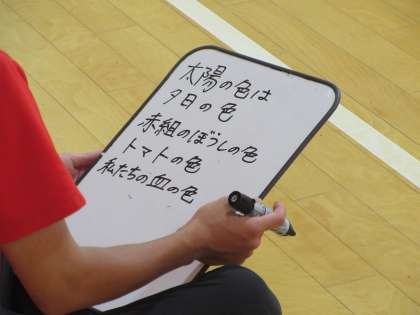 太陽の色は
夕日の色
赤組のぼうしの色
トマトの色
私たちの血の色